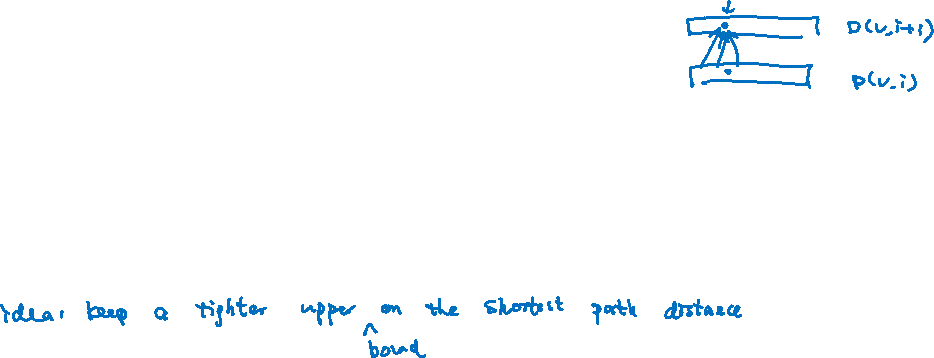 D(v,i+1)
D(v,i)
idea: keep a tighter upper bound on the shortest path distance